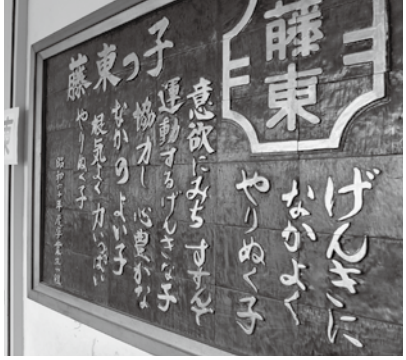 藤東
げんきに
なかよく
やりぬく子
藤東っ子
意欲にみち すすんで
運動するげんきな子
協力し 心豊かな
なかのよい子
根気よく 力いっぱい
やりぬく子